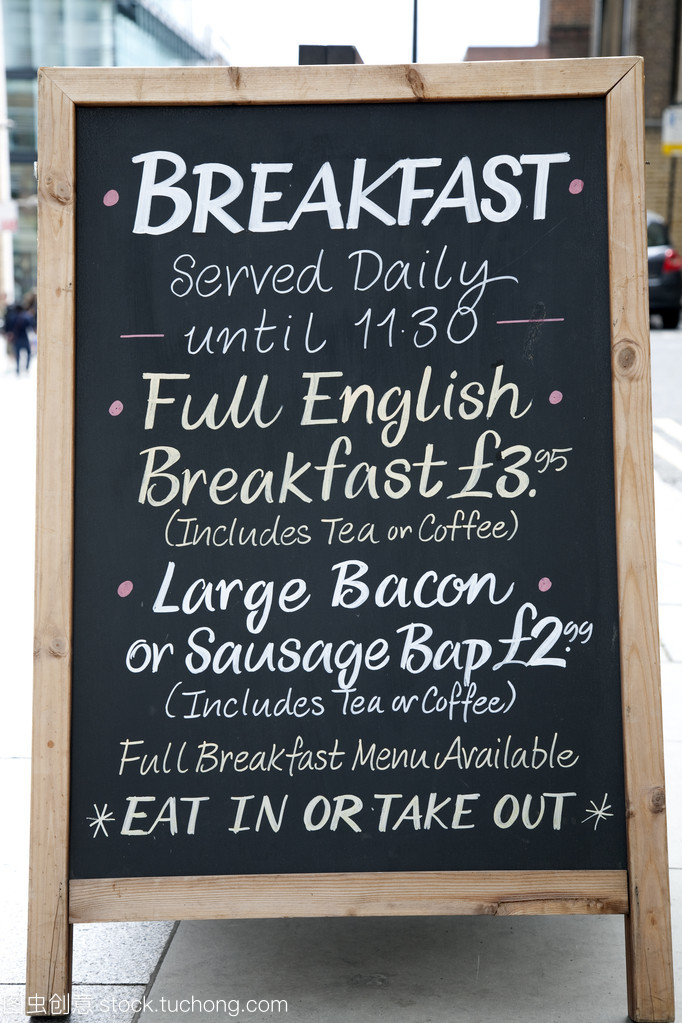 BREAKFAST
Served Daily
until 11.30
Full English
Breakfast £3.95
(Includes Tea or Coffee)
Large Bacon
or Sausage Bap £2.99
(Includes Tea or Coffee)
Full Breakfast Menu Available
*EAT IN OR TAKE OUT*
图虫创意 stock.tuchong.com